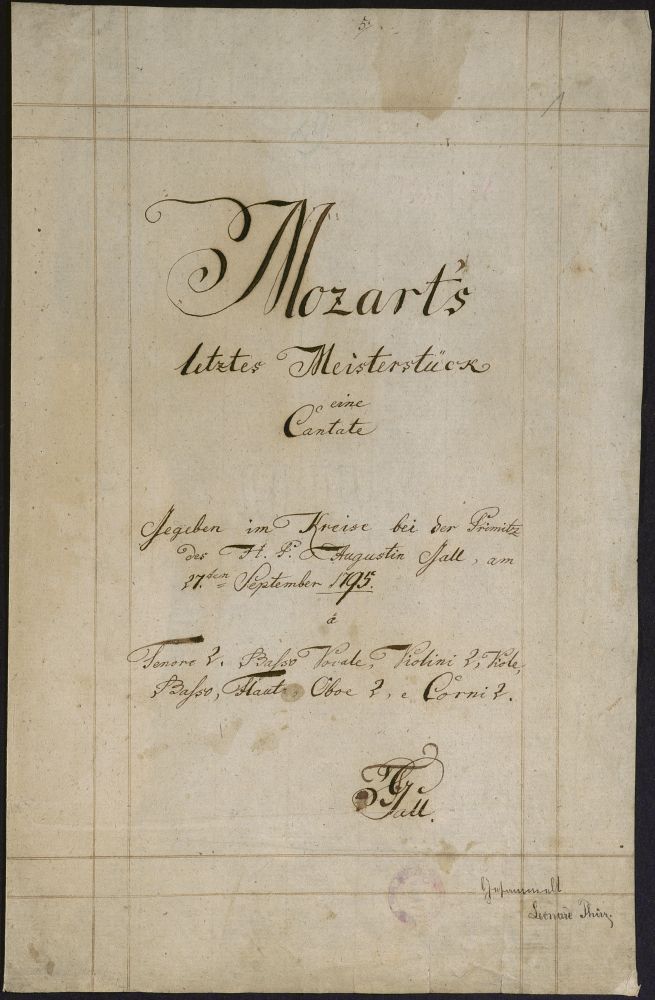 5.
1
Mozart's
letztes Meisterstück
eine
Cantate
Gegeben im Kreise bei der Primitz
des H. P. Augustin Gall, am
27.ten September 1795.
à
Tenore 2. Basso Vocale, Violini 2, Viole,
Basso, Flaut, Oboe 2, e Corni 2.
Gall.
Gesammelt